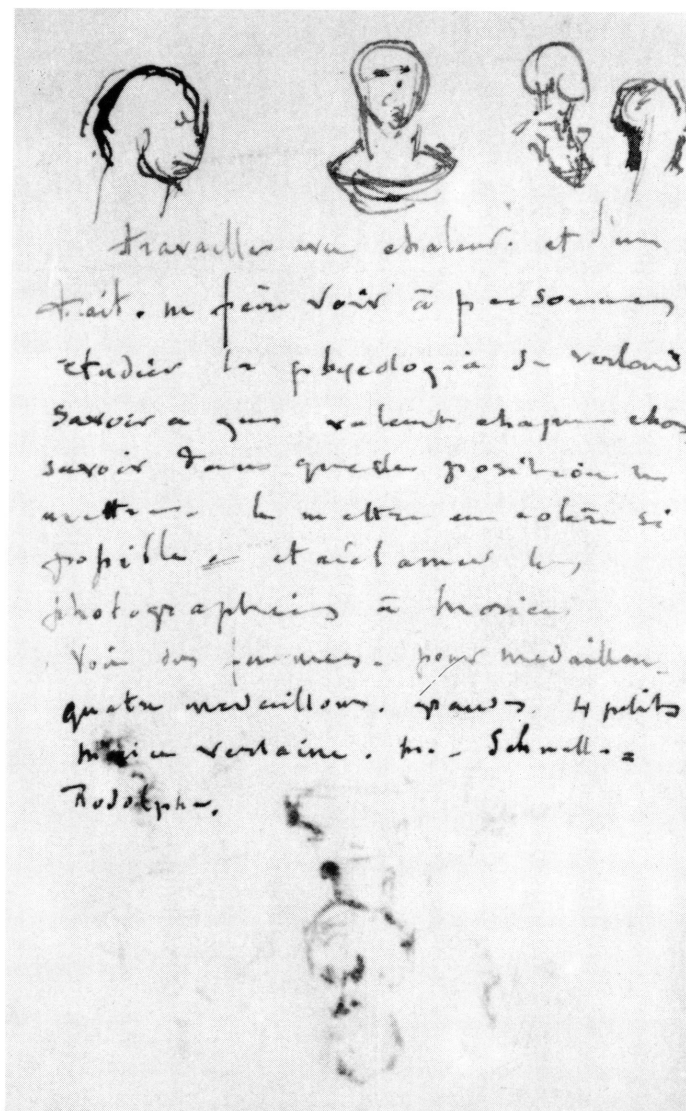 travailler avec chaleur. et d'un
trait. ne faire voir à personnes
etudier la phycologia de verlaine
savoir a quoi valent chaque chose
savoir dans quelle position le
mettre. le mettre en colère si
possible et réclamer les
photographies à Morice
voir des femmes. pour medaillon
quatre medaillons. grands. 4 petits
morice verlaine. Schnell. =
Rodolphe.